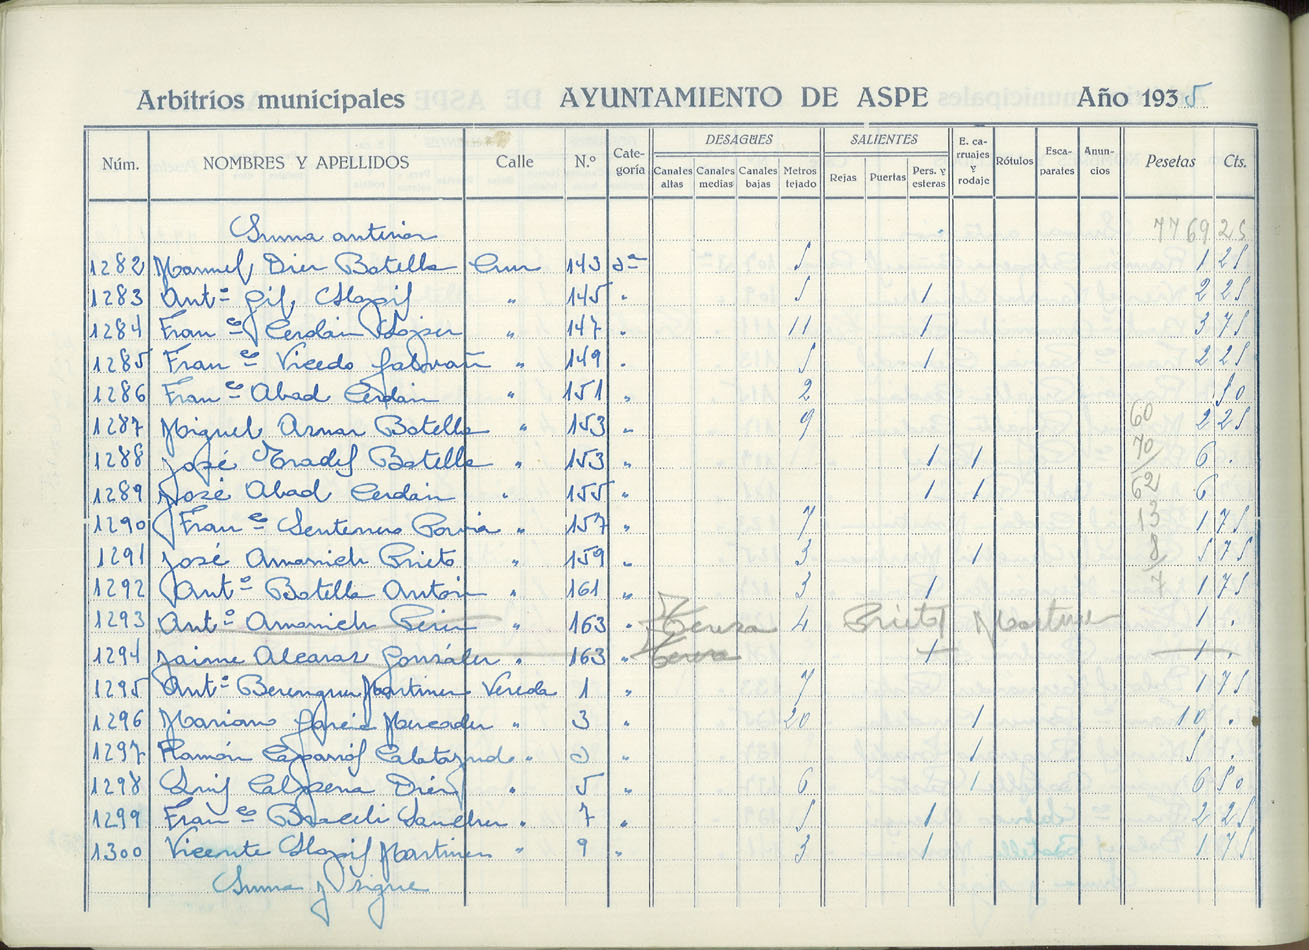 Arbitrios municipales AYUNTAMIENTO DE ASPE Año 1935
Núm. NOMBRES Y APELLIDOS Calle N.º Categoría DESAGÜES Canales altas Canales medias Canales bajas Metros tejado SALIENTES Rejas Puertas Pers. y esteras E. carruajes y rodaje Rótulos Escaparates Anuncios Pesetas Cts.
Suma anterior 7769 25
1282 Manuel Dier Botella Cruz 143 2ª 5 1 25
1283 Antº Gil Alzpil " 145 " 5 1 2 25
1284 Franco Cerdán López " 147 " 11 1 3 75
1285 Franco Vicedo Galvañ " 149 " 5 1 2 25
1286 Franco Abad Cerdán " 151 " 2 50
1287 Miguel Aznar Botella " 153 " 9 2 25
60
1288 José Pradel Botella " 153 " 1 1 6 .
70
1289 José Abad Cerdán " 155 " 1 1 6 .
62
1290 Franco Sentenero Pavia " 157 " 7 1 75
13
1291 José Amorich Prieto " 159 " 3 1 5 75
8
1292 Antº Botella Antón " 161 " 3 1 1 75
7
1293 Antº Amorich " 163 " Teresa 4 Prieto Martinez 1 .
1294 Jaime Alcaraz González " 163 " Teresa 1 1 .
1295 Antº Berenguer Martinez Vereda 1 " 7 1 75
1296 Mariano García Mercader " 3 " 20 1 10 .
1297 Ramón Caparrós Calatayud " 2 " 1 5 .
1298 Luis Calpena Dier " 5 " 6 1 6 50
1299 Franco Braceli Sanchez " 7 " 5 1 2 25
1300 Vicente Alzpil Martinez " 9 " 3 1 1 75
Suma y sigue